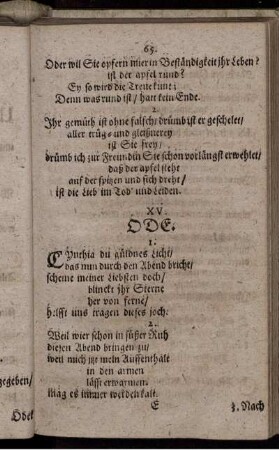 65.
Oder wil Sie opfern mier in Beständigkeit jhr Leben?
ist der apfel rund?
Ey so wird die Treue kunt;
Denn was rund ist/ hatt kein Ende.
2.
Ihr gemüth ist ohne falsch; drümb ist er geschelet/
aller trüg- und gleißnerey
ist Sie frey/
drümb ich zur Freundin Sie schon vorlängst erwehlet/
daß der apfel steht
auf der spitzen und sich dreht/
ist die Lieb im Tod' und Leiden.
XV.
ODE.
1.
CYnthia du güldnes Licht/
das nun durch den Abend bricht/
scheine meiner Liebsten doch/
blinckt jhr Sterne
her von ferne/
helfft uns tragen dieses joch.
2.
Weil wier schon in süßer Ruh
diesen Abend bringen zu/
weil mich itzt mein Auffenthalt
in den armen
lässt erwarmen.
mag es immer werden kalt.
E
3. Nach
gegeben/
Odek